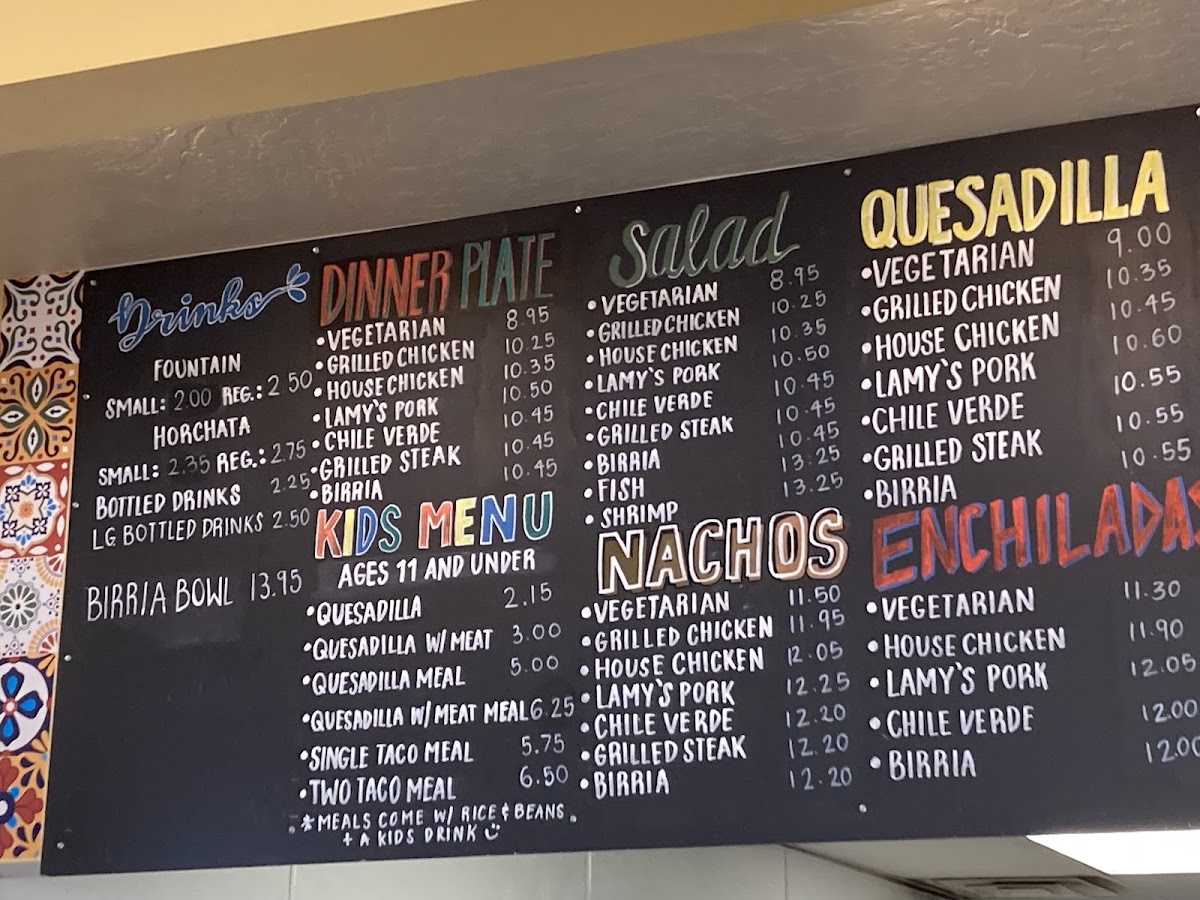 Drinks
FOUNTAIN
SMALL: 2.00 REG.: 2.50
HORCHATA
SMALL: 2.35 REG.: 2.75
BOTTLED DRINKS 2.25
LG BOTTLED DRINKS 2.50
BIRRIA BOWL 13.95
DINNER PLATE
•VEGETARIAN 8.95
•GRILLED CHICKEN 10.25
•HOUSE CHICKEN 10.35
•LAMY'S PORK 10.50
•CHILE VERDE 10.45
•GRILLED STEAK 10.45
•BIRRIA 10.45
KIDS MENU
AGES 11 AND UNDER
•QUESADILLA 2.15
•QUESADILLA W/ MEAT 3.00
•QUESADILLA MEAL 5.00
•QUESADILLA W/ MEAT MEAL 6.25
•SINGLE TACO MEAL 5.75
•TWO TACO MEAL 6.50
•*MEALS COME W/ RICE & BEANS.
+ A KIDS DRINK
Salad
•VEGETARIAN 8.95
•GRILLED CHICKEN 10.25
•HOUSE CHICKEN 10.35
•LAMY'S PORK 10.50
•CHILE VERDE 10.45
•GRILLED STEAK 10.45
•BIRRIA 10.45
•FISH 13.25
•SHRIMP 13.25
NACHOS
•VEGETARIAN 11.50
•GRILLED CHICKEN 11.95
•HOUSE CHICKEN 12.05
•LAMY'S PORK 12.25
•CHILE VERDE 12.20
•GRILLED STEAK 12.20
•BIRRIA 12.20
QUESADILLA
•VEGETARIAN 9.00
•GRILLED CHICKEN 10.35
•HOUSE CHICKEN 10.45
•LAMY'S PORK 10.60
•CHILE VERDE 10.55
•GRILLED STEAK 10.55
•BIRRIA 10.55
ENCHILADAS
•VEGETARIAN 11.30
•HOUSE CHICKEN 11.90
•LAMY'S PORK 12.05
•CHILE VERDE 12.00
•BIRRIA 12.00